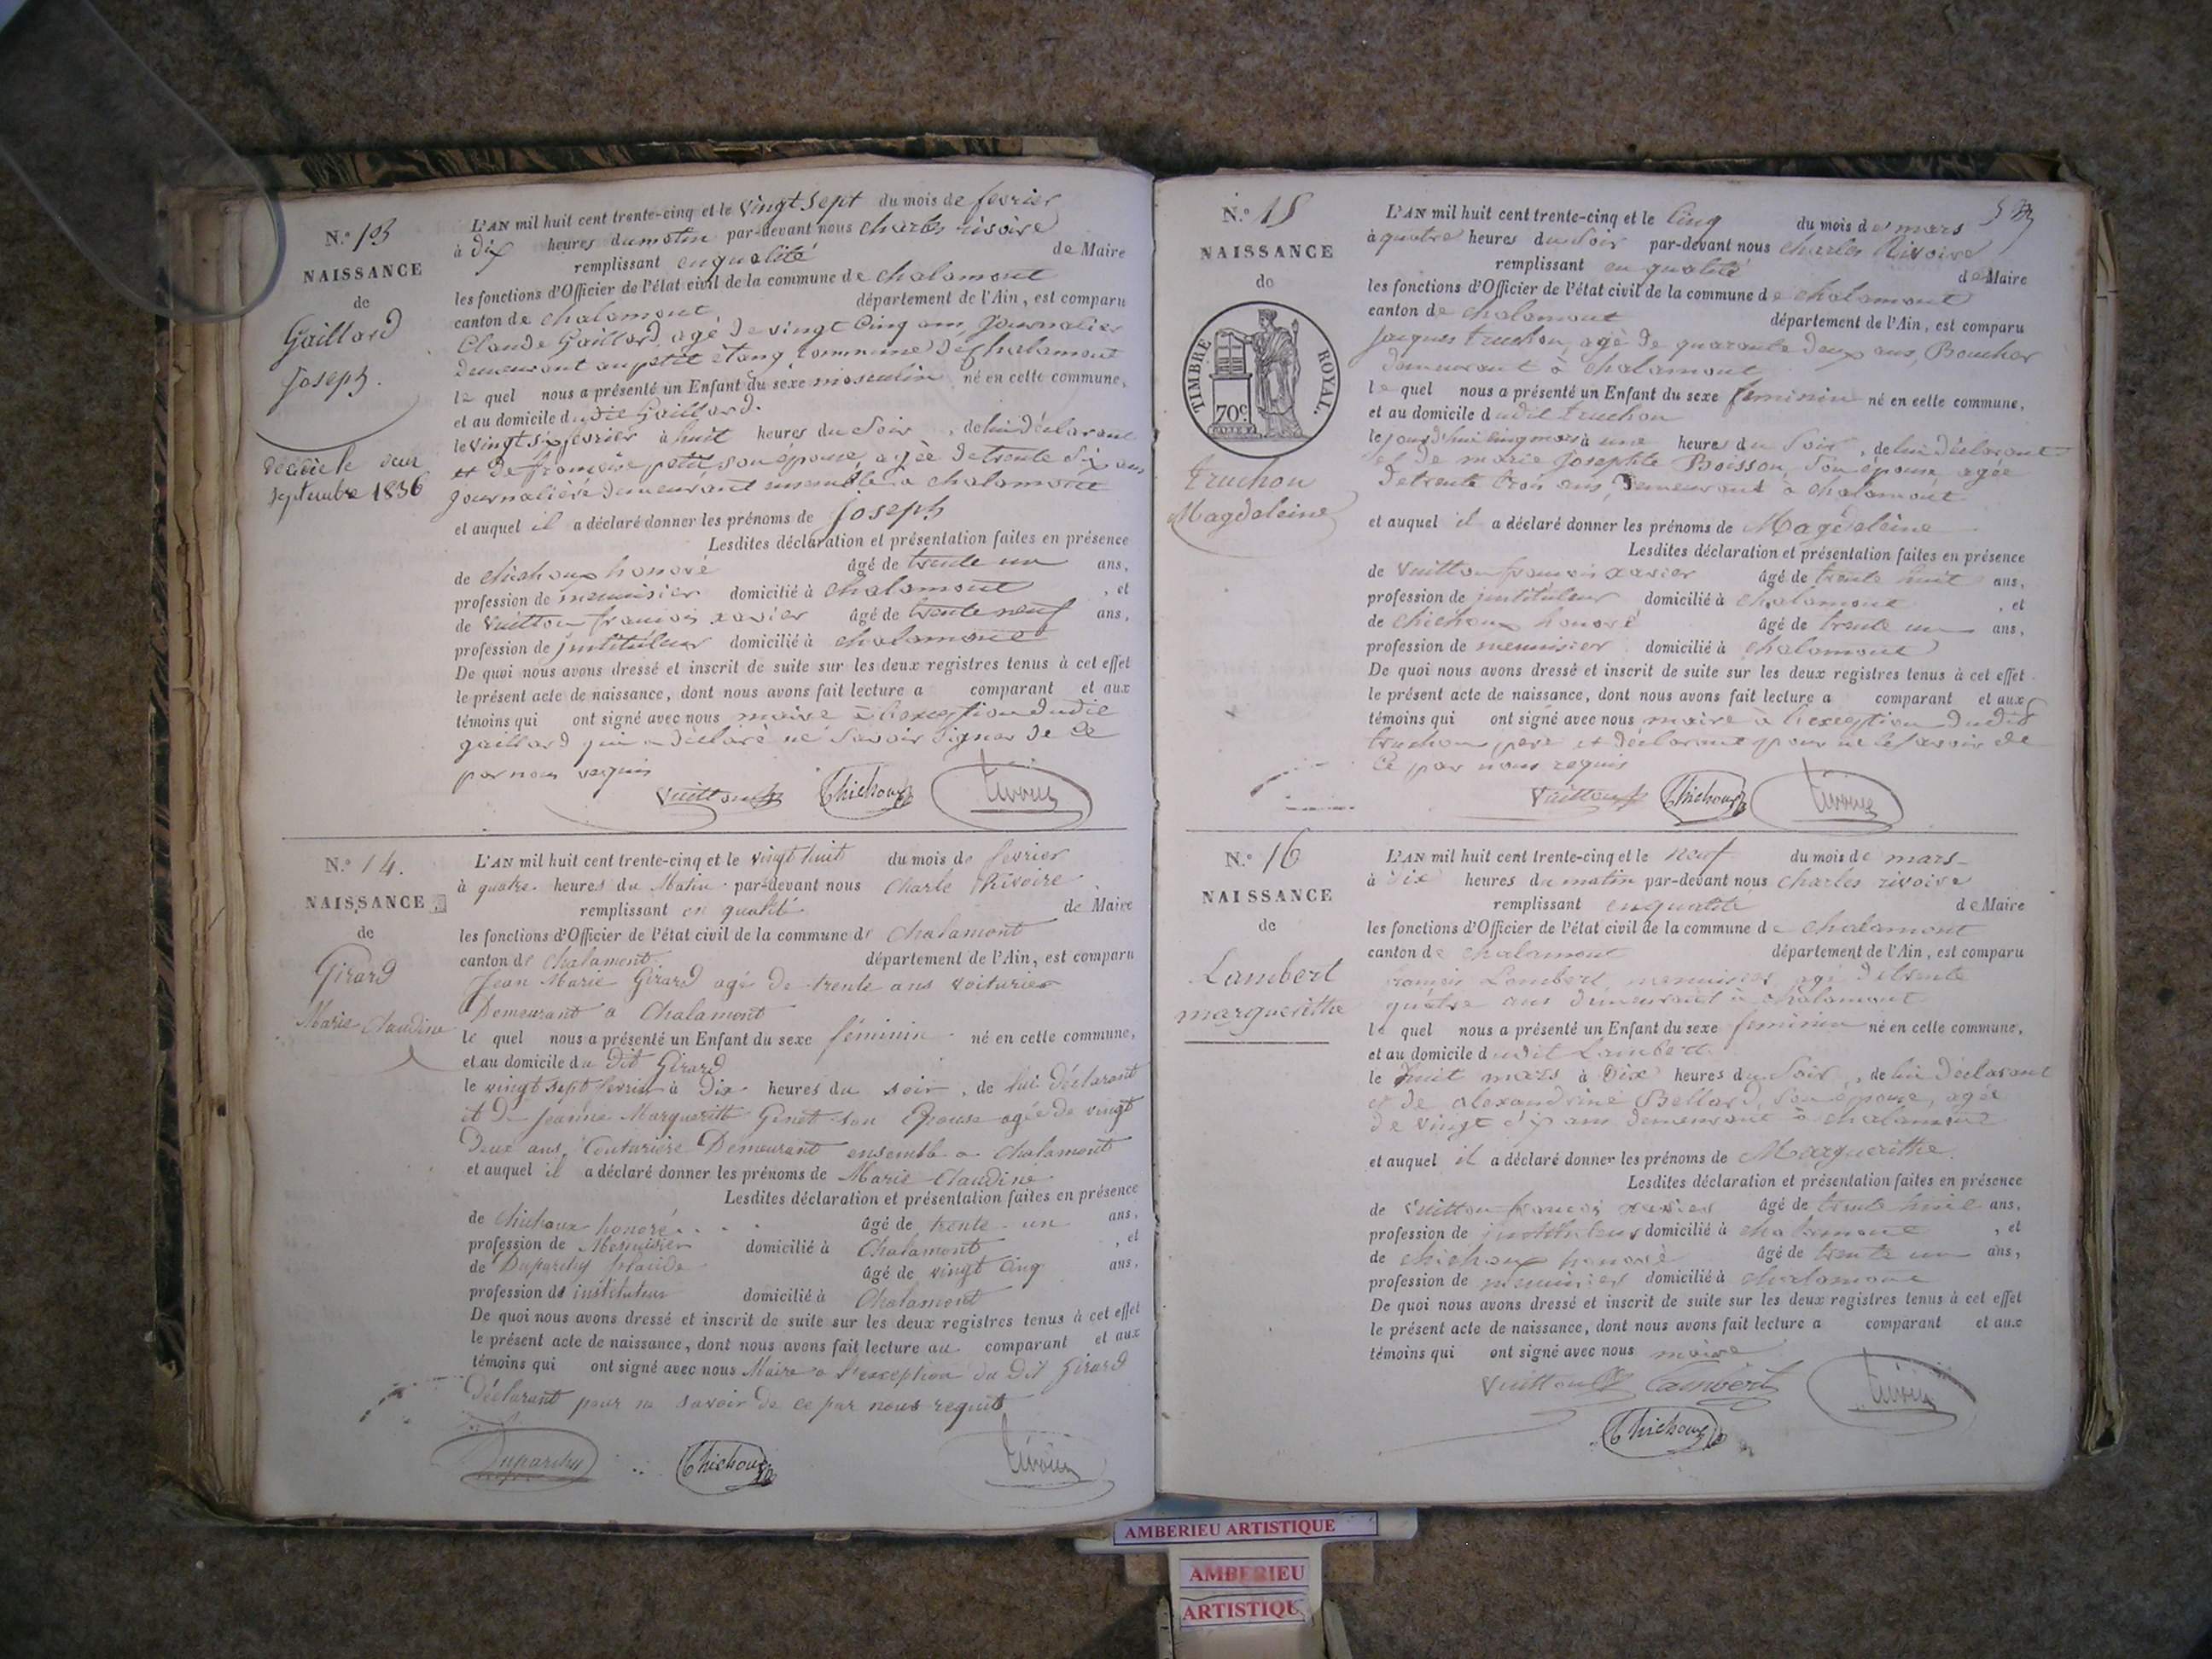 N.° 13
NAISSANCE
de
Gaillard
Joseph.
décédé le deux
septembre 1836
L'AN mil huit cent trente-cinq et le vingt sept du mois de fevrier
à dix heures du matin par-devant nous charles rivoire
remplissant en qualité de Maire
les fonctions d'Officier de l'état civil de la commune de chalamont
canton de chalamont département de l'Ain, est comparu
Claude Gaillard, agé de vingt Cinq ans, Journalier
demeurant au petit étang commune de chalamont
le quel nous a présenté un Enfant du sexe masculin né en cette commune,
et au domicile dudit Gaillard.
le vingt six fevrier à huit heures du Soir, de lui déclarant
et de francoise petit son epouse, agée de trente Six ans
Journalière demeurant ensemble à chalamont
et auquel il a déclaré donner les prénoms de Joseph
Lesdites déclaration et présentation faites en présence
de chichoux honoré âgé de trente un ans,
profession de menuisier domicilié à chalamont, et
de Vuitton francois xavier âgé de trente neuf ans,
profession de jnstituteur domicilié à chalamont
De quoi nous avons dressé et inscrit de suite sur les deux registres tenus à cet effet
le présent acte de naissance, dont nous avons fait lecture a comparant et aux
témoins qui ont signé avec nous maire à l'exception dudit
gaillard qui a déclaré ne Savoir Signer de ce
par nous requis
Vuitton Chichoux rivoire
N.° 14.
NAISSANCE
de
Girard
Marie Claudine
L'AN mil huit cent trente-cinq et le vingt huit du mois de fevrier
à quatre heures du Matin par-devant nous Charle Rivoire
remplissant en qualité de Maire
les fonctions d'Officier de l'état civil de la commune de Chalamont
canton de Chalamont département de l'Ain, est comparu
Jean Marie Girard agé de trente ans voiturier
Demeurant a Chalamont
le quel nous a présenté un Enfant du sexe féminin né en cette commune,
et au domicile du Dit Girard
le vingt sept fevrier à Dix heures du soir, de lui déclarant
et de Jeanne Marguerite Genet son Epouse agée de vingt
Deux ans, Couturière Demeurant ensemble a Chalamont
et auquel il a déclaré donner les prénoms de Marie Claudine
Lesdites déclaration et présentation faites en présence
de chichoux honoré âgé de trente un ans,
profession de Menuisier domicilié à Chalamont, et
de Duparchy âgé de vingt Cinq ans,
profession de instituteur domicilié à Chalamont
De quoi nous avons dressé et inscrit de suite sur les deux registres tenus à cet effet
le présent acte de naissance, dont nous avons fait lecture au comparant et aux
témoins qui ont signé avec nous Maire a l'exception du Dit Girard
Déclarant pour ne savoir de ce par nous requis
Duparchy Chichoux rivoire
N.° 15
NAISSANCE
de
TIMBRE ROYAL.
70c
truchon
Magdeleine
L'AN mil huit cent trente-cinq et le Cinq du mois de mars
à quatre heures du Soir par-devant nous charles Rivoire
remplissant en qualité de Maire
les fonctions d'Officier de l'état civil de la commune de chalamont
canton de chalamont département de l'Ain, est comparu
Jacques truchon, agé de quarante deux ans, Boucher
demeurant à chalamont
le quel nous a présenté un Enfant du sexe feminin né en cette commune,
et au domicile dudit truchon
le jourd'hui cinq mars à une heures du Soir, de lui déclarant
et de marie Josephte Boisson, Son épouse, agée
de trente trois ans, demeurant à chalamont
et auquel il a déclaré donner les prénoms de Magdeleine
Lesdites déclaration et présentation faites en présence
de Vuitton francois xavier âgé de trente huit ans,
profession de jnstituteur domicilié à chalamont, et
de chichoux honoré âgé de trente un ans,
profession de menuisier domicilié à chalamont
De quoi nous avons dressé et inscrit de suite sur les deux registres tenus à cet effet
le présent acte de naissance, dont nous avons fait lecture a comparant et aux
témoins qui ont signé avec nous maire à l'exception dudit
truchon père et déclarant pour ne le savoir de
Ce par nous requis
Vuitton Chichoux rivoire
N.° 16
NAISSANCE
de
Lambert
marguerithe
L'AN mil huit cent trente-cinq et le Neuf du mois de mars
à dix heures du matin par-devant nous charles rivoire
remplissant en qualité de Maire
les fonctions d'Officier de l'état civil de la commune de chalamont
canton de chalamont département de l'Ain, est comparu
francois Lambert, menuisier agé de trente
quatre ans demeurant à chalamont
le quel nous a présenté un Enfant du sexe feminin né en cette commune,
et au domicile dudit Lambert.
le huit mars à Dix heures du Soir, de lui déclarant
et de alexandrine Bellard, Son epouse, agée
de vingt ans demeurant à chalamont
et auquel il a déclaré donner les prénoms de Marguerithe.
Lesdites déclaration et présentation faites en présence
de Vuitton francois xavier âgé de trente huit ans,
profession de jnstituteur domicilié à chalamont, et
de chichoux honoré âgé de trente un ans,
profession de menuisier domicilié à chalamont
De quoi nous avons dressé et inscrit de suite sur les deux registres tenus à cet effet
le présent acte de naissance, dont nous avons fait lecture a comparant et aux
témoins qui ont signé avec nous maire
Vuitton Lambert rivoire
Chichoux
AMBERIEU ARTISTIQUE
AMBERIEU
ARTISTIQUE